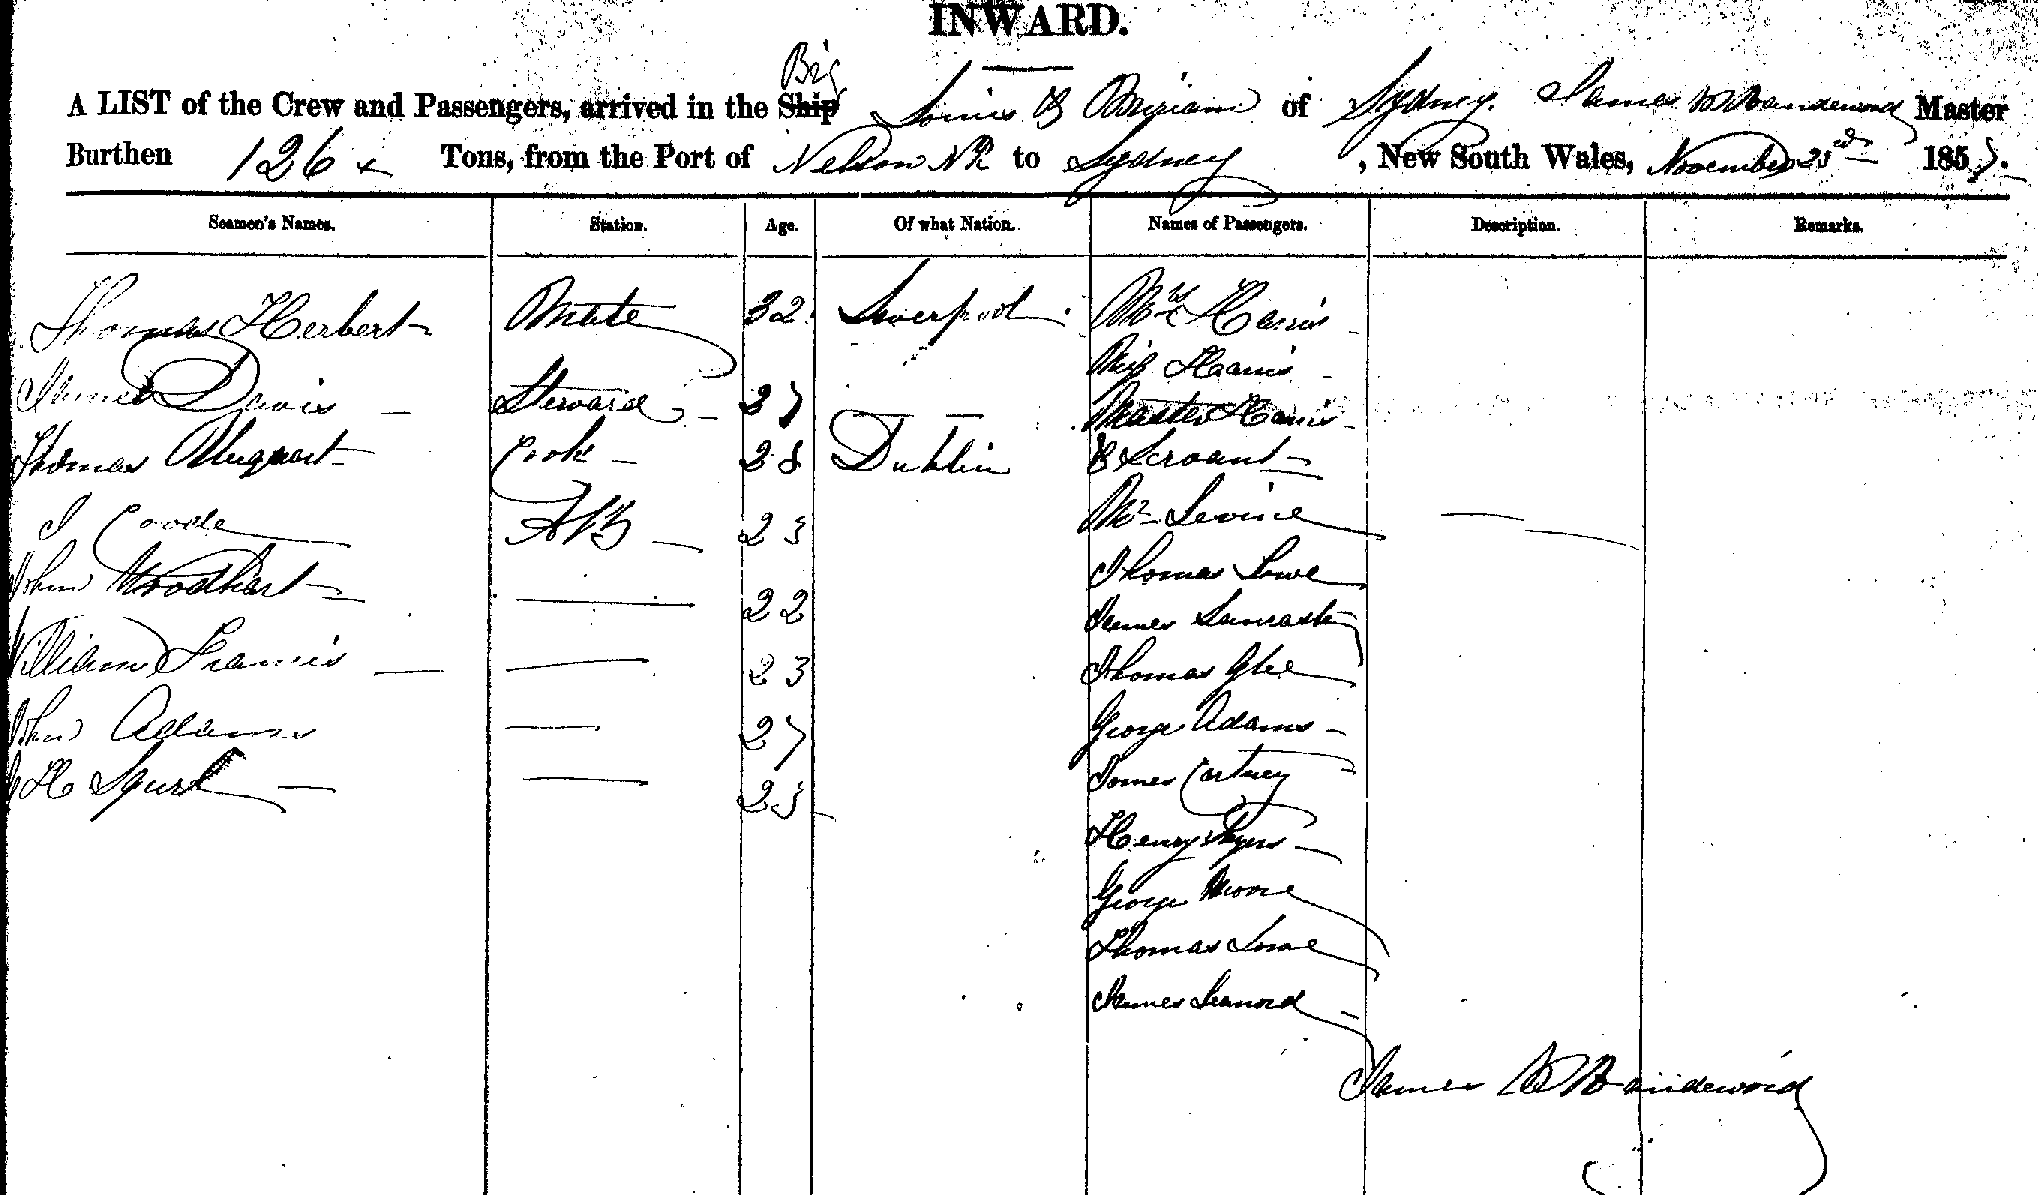 INWARD.
Brig
A LIST of the Crew and Passengers, arrived in the Ship Louis & Miriam of Sydney. James Master
Burthen 126 Tons, from the Port of Nelson NZ to Sydney, New South Wales, November 23rd 1857.
Seamen's Names. Station. Age. Of what Nation. Names of Passengers. Description. Remarks.
Thomas Herbert Mate 32 Liverpool Mrs Harris
Miss Harris
Davis Steward 37 — Master Harris
Thomas Cook 28 Dublin & Servant
J Coode AB 23 Mr Levine
Thomas Lowe
John Woodhart — 22 James Lancaster
William Francis — 23 Thomas
John Adams — 27 George Adams
James Cartney
H — 23 Henry
George Moore
Thomas Lowe
James Leonard
James